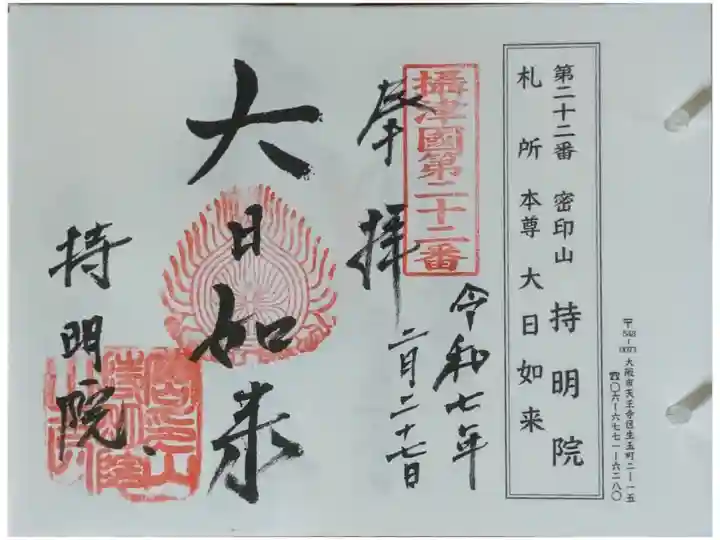 第二十二番 密印山 持明院
札所 本尊 大日如来
〒543-0073 大阪市天王寺区生玉町二ー一五
☎〇六ー六七七一ー六二八〇
攝津國第二十二番
奉拝
令和七年
二月二十七日
大日如来
持明院